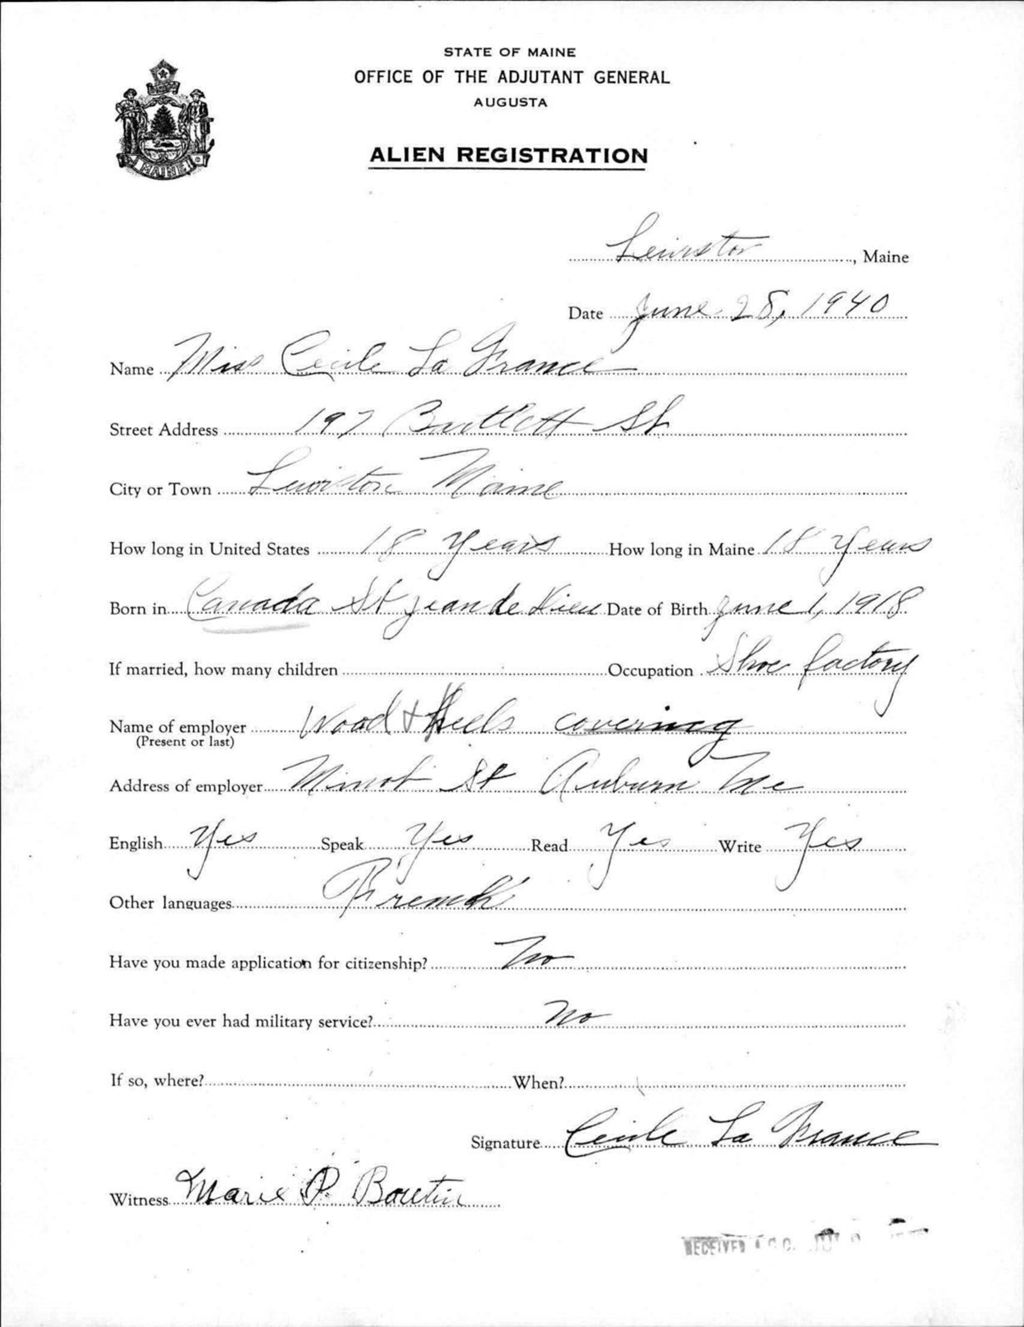 STATE OF MAINE
OFFICE OF THE ADJUTANT GENERAL
AUGUSTA
ALIEN REGISTRATION
MAINE
Lewiston, Maine
Date June 28, 1940
Name Miss Cecile La France
Street Address 197 Bartlett St
City or Town Lewiston Maine
How long in United States 18 Years How long in Maine 18 Years
Born in Canada St Jean de Dieu Date of Birth June 1, 1918
If married, how many children Occupation Shoe factory
Name of employer Wood & Heels covering
(Present or last)
Address of employer Minot St Auburn Me
English Yes Speak Yes Read Yes Write Yes
Other languages French
Have you made application for citizenship? No
Have you ever had military service? No
If so, where? When?
Signature Cecile La France
Witness Marie P. Boutin
RECEIVED